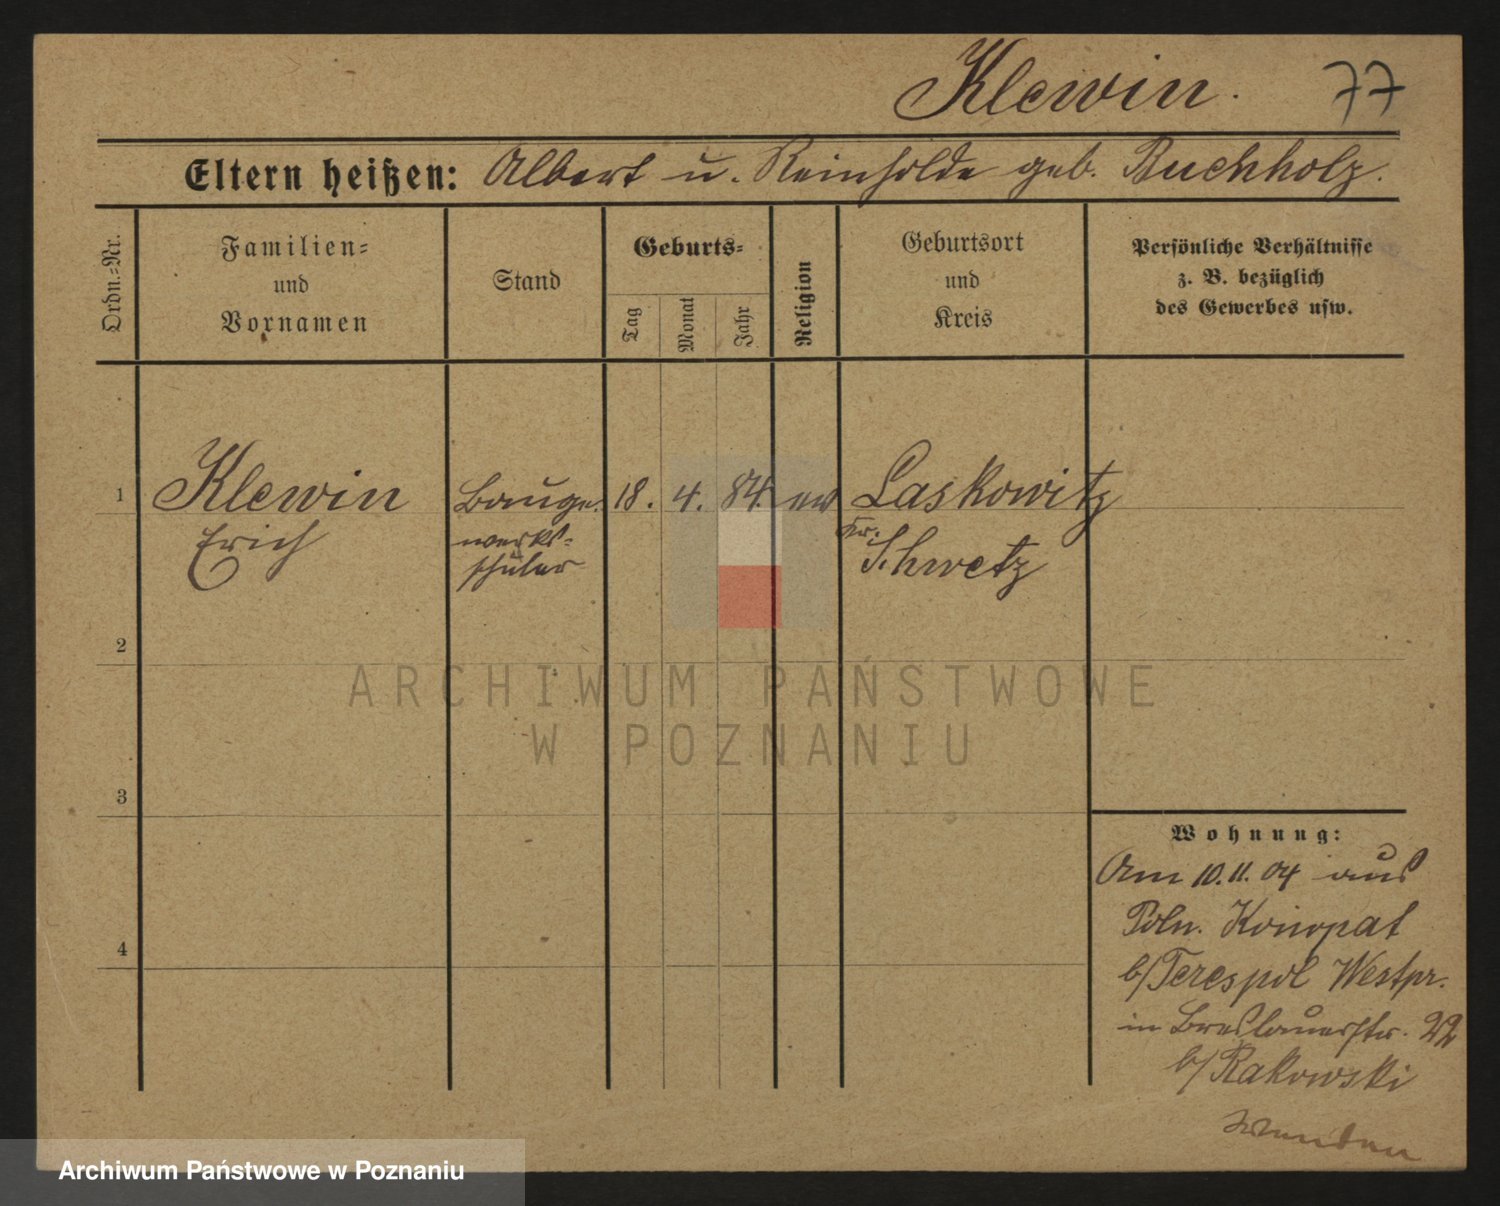 Klewin. 77
Eltern heißen: Albert u. Reinholde geb. Buchholz.
Ordn.-Nr.
Familien-
und
Vornamen
Stand
Geburts-
Tag
Monat
Jahr
Religion
Geburtsort
und
Kreis
Persönliche Verhältnisse
z. B. bezüglich
des Gewerbes usw.
1 Klewin Bauge- 18. 4. 84. ev Laskowitz
Erich werks- Kr. Schwetz
schüler
2
3
4
Wohnung:
Am 10. 11. 04 aus
Poln. Konopat
b/Terespol Westpr.
in Breslauerstr. 22
b/Rakowski
wenden
ARCHIWUM PAŃSTWOWE
W POZNANIU
Archiwum Państwowe w Poznaniu